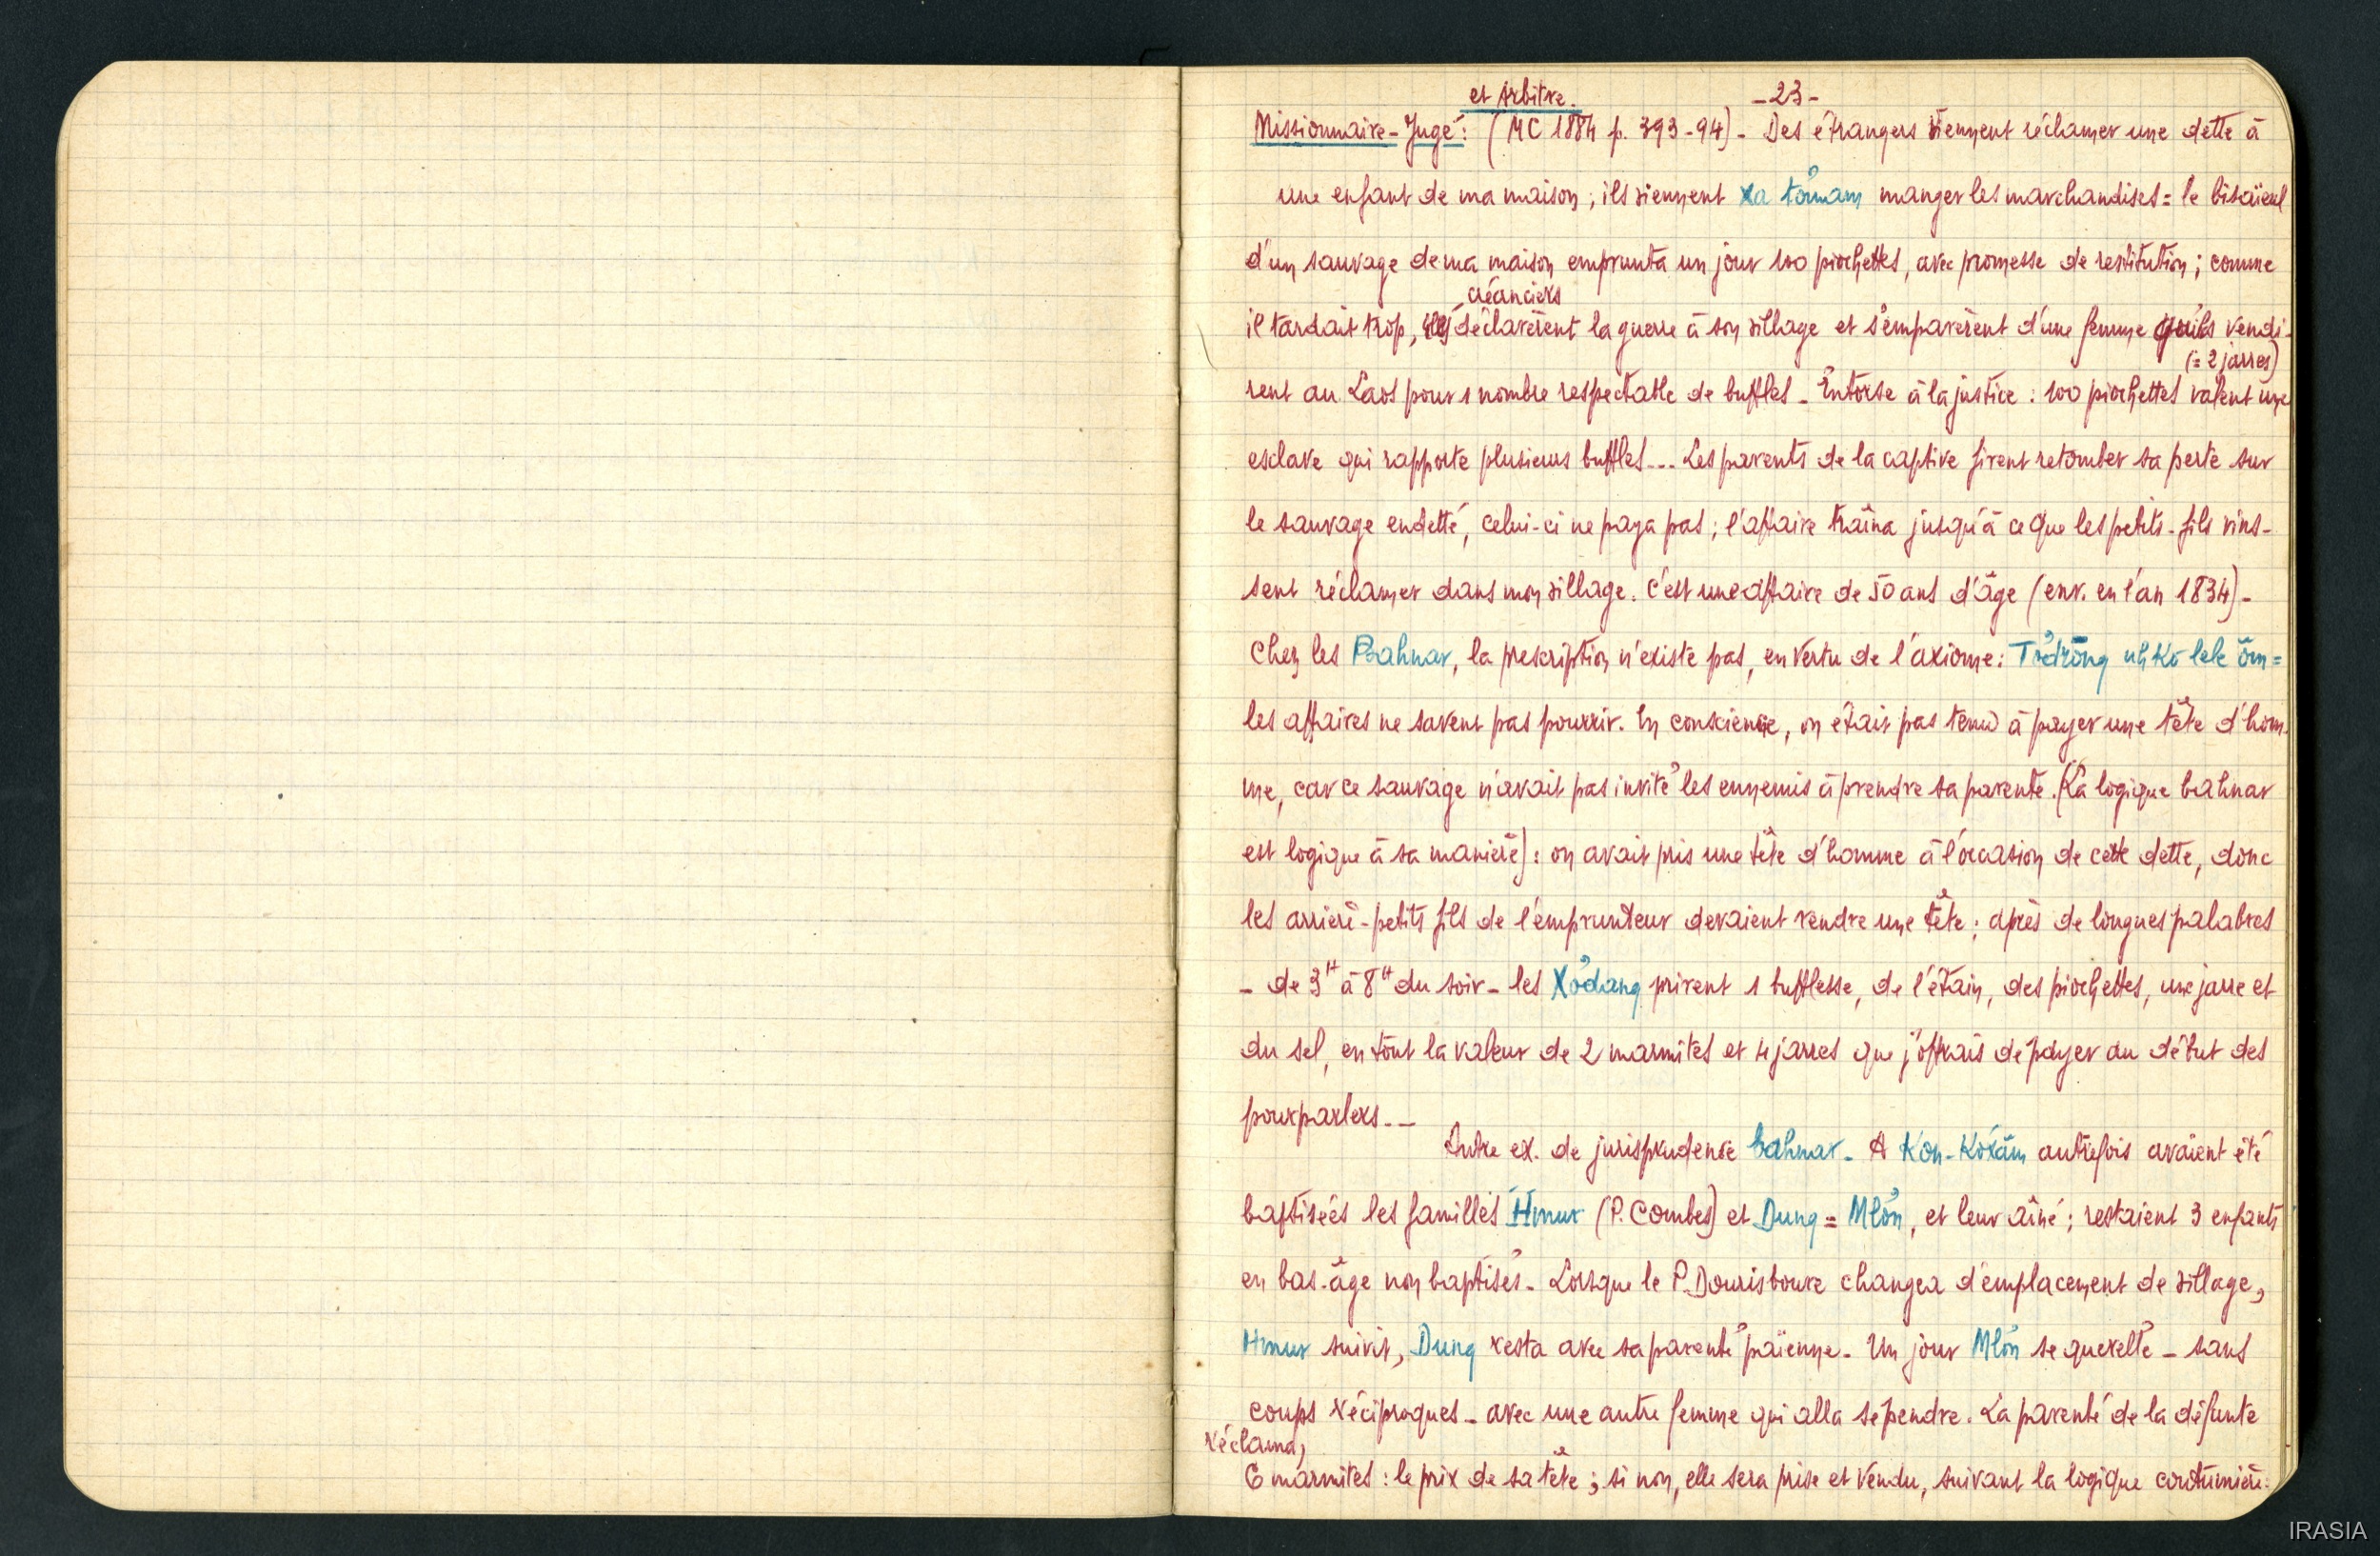 et Arbitre. -23-
Missionnaire-Juge: (MC 1884 p. 393-94)- Des étrangers viennent réclamer une dette à
une enfant de ma maison; ils viennent xa tơmam manger les marchandises = le bisaïeul
d'un sauvage de ma maison emprunta un jour 100 piochettes, avec promesse de restitution; comme
créanciers
il tardait trop, les déclarèrent la guerre à son village et s'emparèrent d'une femme qu'ils vendi-
(= 2 jarres)
rent au Laos pour 1 nombre respectable de buffles - Entorse à la justice: 100 piochettes valent une
esclave qui rapporte plusieurs buffles... Les parents de la captive firent retomber sa perte sur
le sauvage endetté, celui-ci ne paya pas; l'affaire traîna jusqu'à ce que les petits-fils vins-
sent réclamer dans mon village. C'est une affaire de 50 ans d'âge (env. en l'an 1834)-
Chez les Bahnar, la prescription n'existe pas, en vertu de l'axiome: Tơdrong uh kơ lele ôm=
les affaires ne savent pas pourrir. En conscience, on était pas tenu à payer une tête d'hom-
me, car ce sauvage n'avait pas invité les ennemis à prendre sa parente. (La logique bahnar
est logique à sa manière): on avait pris une tête d'homme à l'occasion de cette dette, donc
les arrière-petits fils de l'emprunteur devaient rendre une tête; après de longues palabres
- de 3H à 8H du soir - les Xơdang prirent 1 bufflesse, de l'étain, des piochettes, une jarre et
du sel, en tout la valeur de 2 marmites et 4 jarres que j'offrais de payer au début des
pourparlers--
Autre ex. de jurisprudence bahnar - A Kon-Kơxâm autrefois avaient été
baptisées les familles Hmur (P. Combes) et Dung = Mlơn, et leur aîné; restaient 3 enfants
en bas-âge non baptisés - Lorsque le P. Dourisboure changea d'emplacement de village,
Hmur suivit, Dung resta avec sa parenté païenne - Un jour Mlơn se querelle - sans
coups réciproques - avec une autre femme qui alla se pendre. La parenté de la défunte
réclama,
6 marmites: le prix de sa tête; si non, elle sera prise et vendu, suivant la logique coutumière:
IRASIA